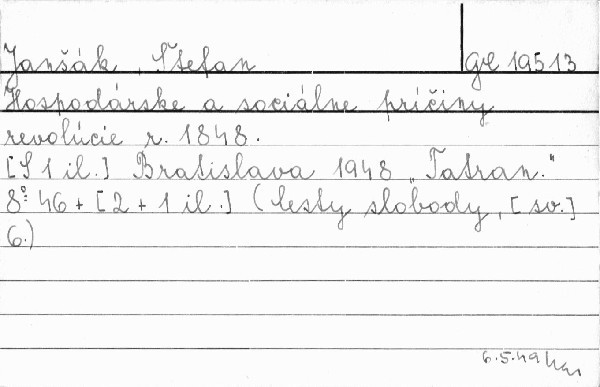 Janšák, Štefan
GE 19513
Hospodárske a sociálne príčiny
revolúcie r. 1848.
[S 1 il.] Bratislava 1948 „Tatran."
8° 46 + [2 + 1 il.] (Cesty slobody, [sv.]
6.)
6.5.49